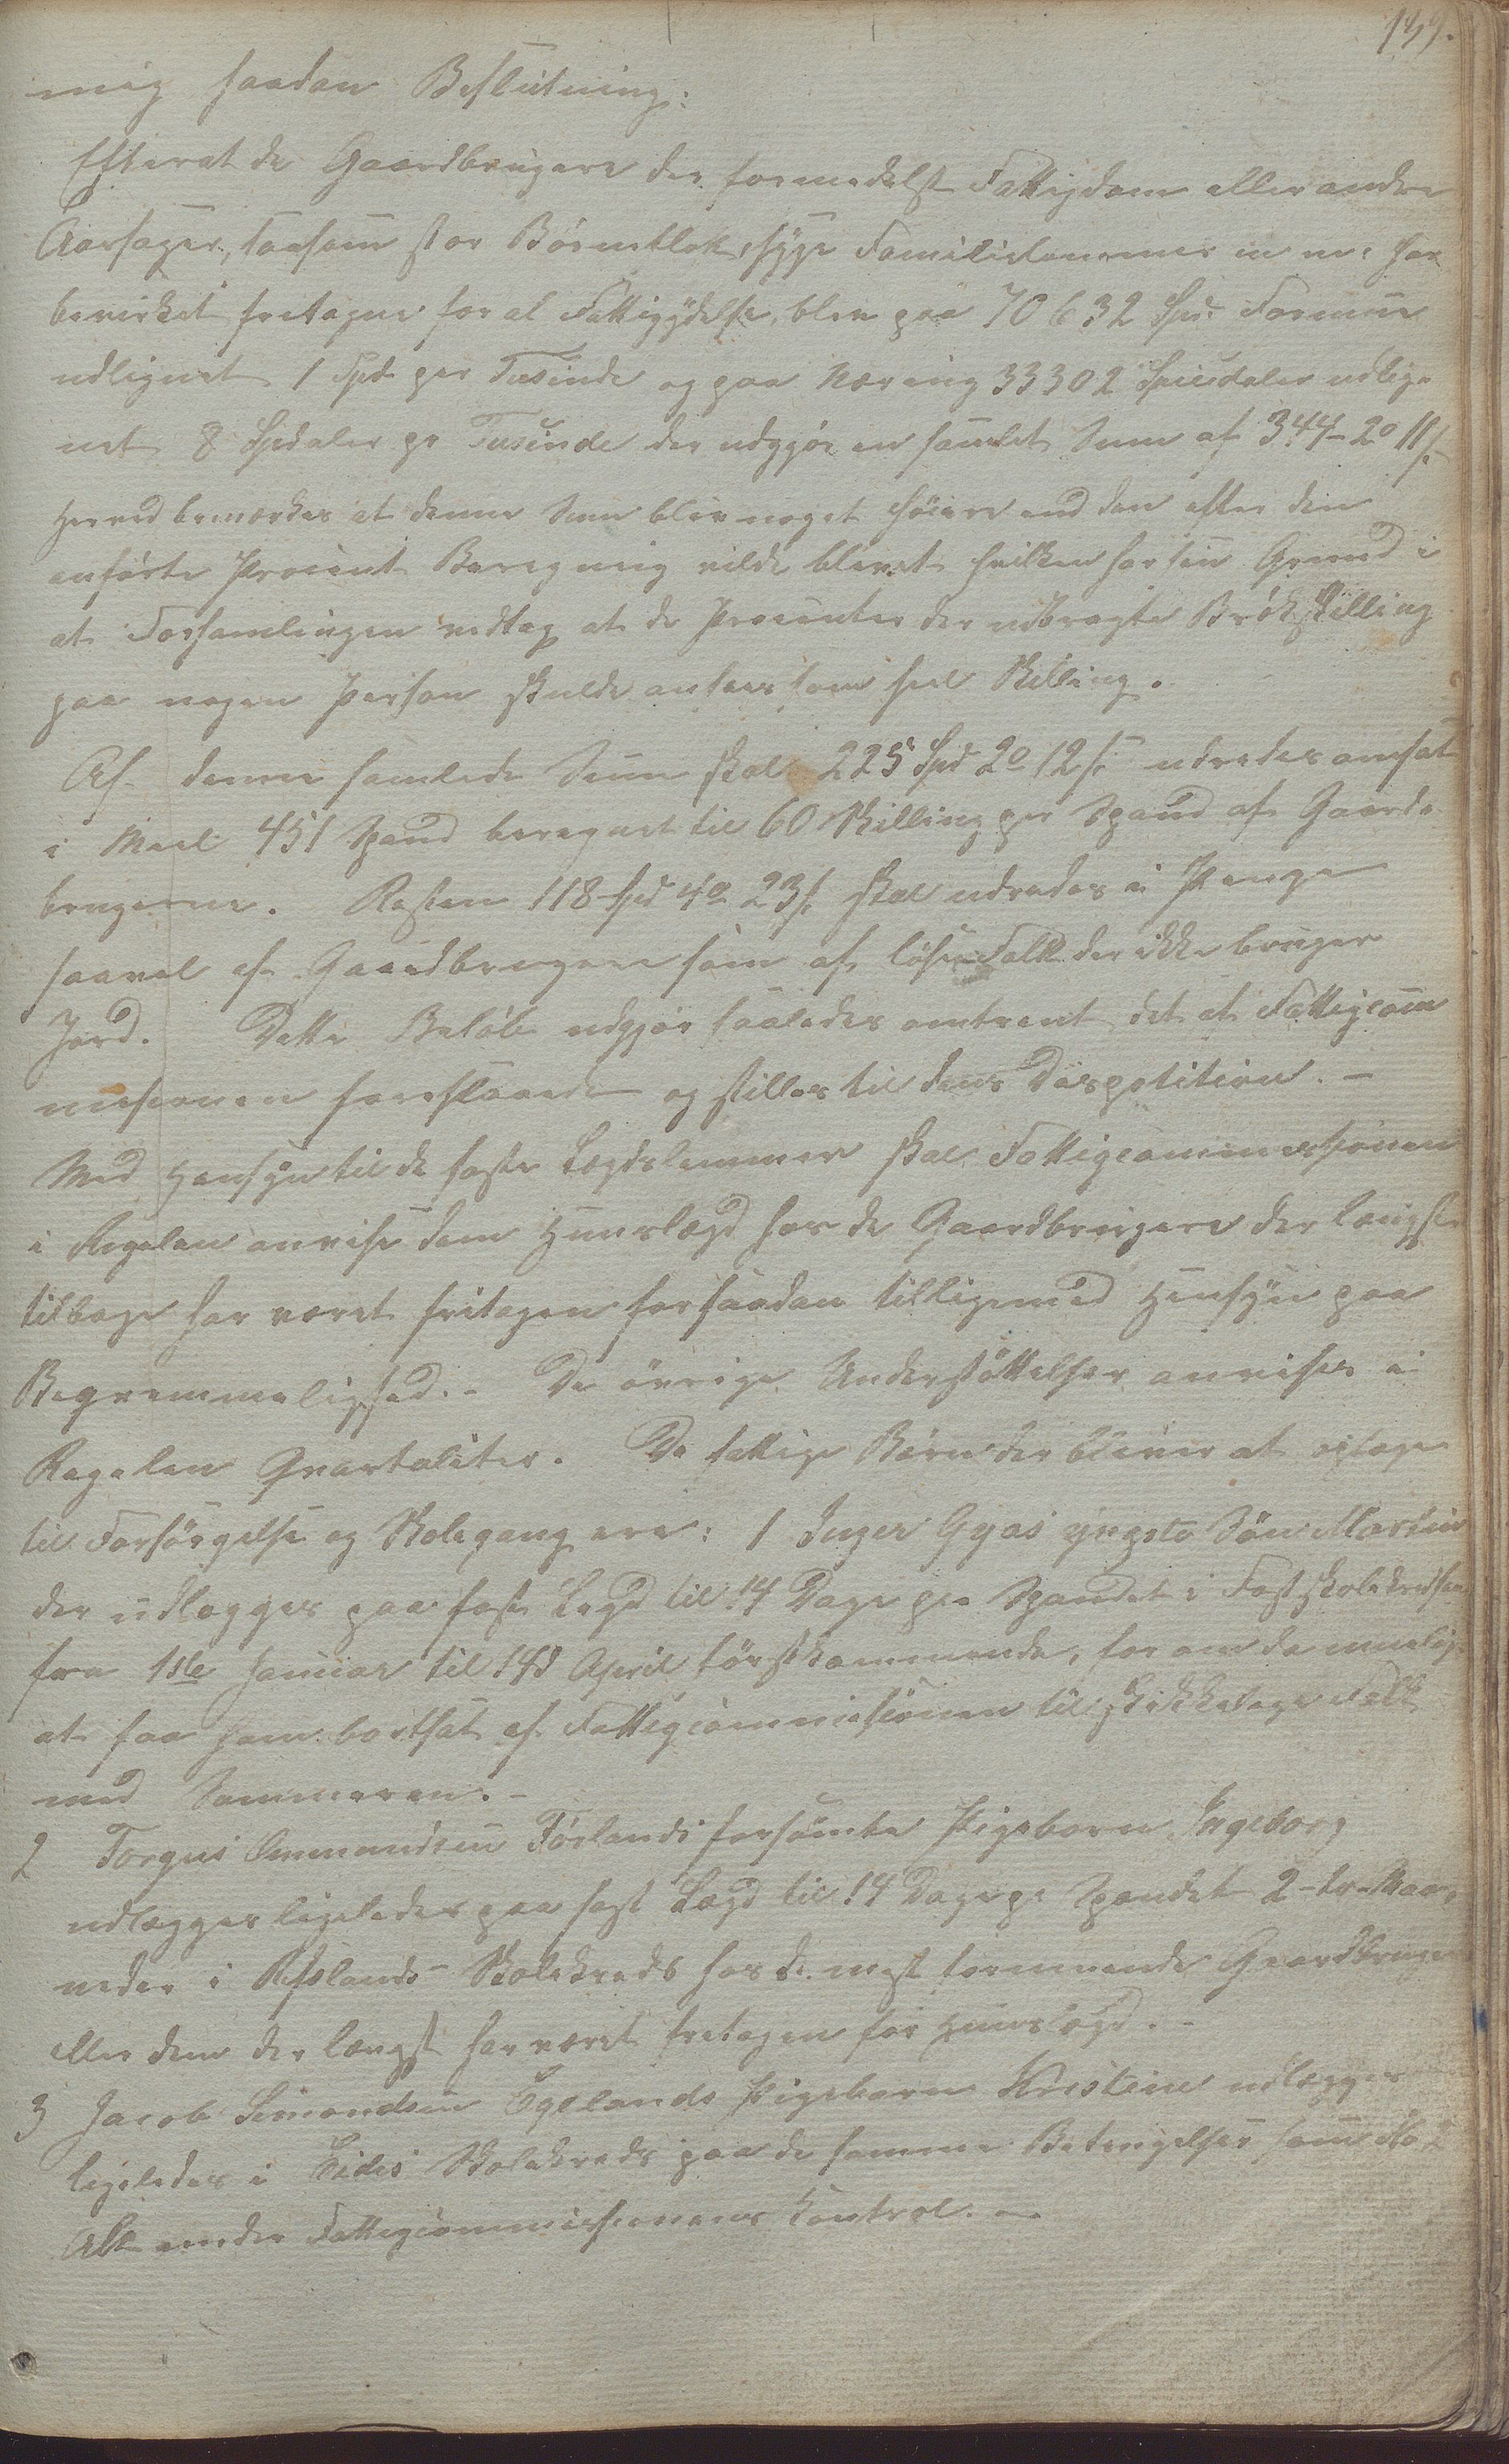 199.
mig saadan Beslutning:
Efterat de Gaardbrugere der formedelst Fattigdom eller andre
Aarsager, saasom stor Börneflok, syge Familielemmer m m: har
bevirket fritagne for al Fattigydelse, blev paa 70632 Spd: Formue
udlignet 1 Spd per Tusinde og paa Næring 33302 Speciedaler udlig-
net 8 Spdaler pr Tusinde der udgjör en samlet Sum af 344-2o 11s.
Herved bemærkes at denne Sum blev noget höiere end den efter den
anförte Procent Beregning vilde blevet hvilken har sin Grund i
at Forsamlingen vedtog at de Procenter der udbragte Brökskilling
paa nogen Person skulde ansees som heel Skilling.
Af denne samlede Sum skal 225 Spd 2o 12s. udredes ansat
i Meel 451 Spand beregnet til 60 Skilling per Spand af Gaard-
brugerne. Resten 118 Spd 4o 23s. skal udredes i Penge
saavel af Gaardbrugere som af löse Folk der ikke bruger
Jord. Dette Belöb udgjör saaledes omtrent det at Fattigcom
missionen foreslaaede og stilles til dens Dispotition. -
Med Hensyn til de faste Lægdslemmer skal Fattigcommissionen
i Regelen anvise dem Huuslægd hos de Gaardbrugere der længst
tilbage har været fritagen for saadan tilligemed Hensyn paa
Beqvemmelighed. - De övrige Understöttelser anvises i
Regelen Qvartaliter. De fattige Börn der bliver at optage
til Forsörgelse og Skolegang ere: 1 Inger Gyas yngste Sön Martin
der udlægges paa fast Lægd til 14 Dage pr Spandet i Fastskolekredsen
fra 1ste Januar til 14d April förstkommende, for om da muelig
at faa ham bortsat af Fattigcommissionen til skikkelige Folk
med Sommeren. -
2 Torgus Ommundsen Förlands forsömte Pigebarn Ingeborg
udlægges ligeledes paa fast Lægd til 14 Dage pr Spandet 2-tv- Maa-
neder i Refslands Skolekreds hos de mest formuende Gaardbrugere
eller dem der længst har været fritagen for Huuslægd. -
3 Jacob Simondsen Egelands Pigebarn Kristine udlægges
ligeledes i Eides Skolekreds paa de samme Betingelser som No 2
Alt under Fattigcommissionens Kontrol. -